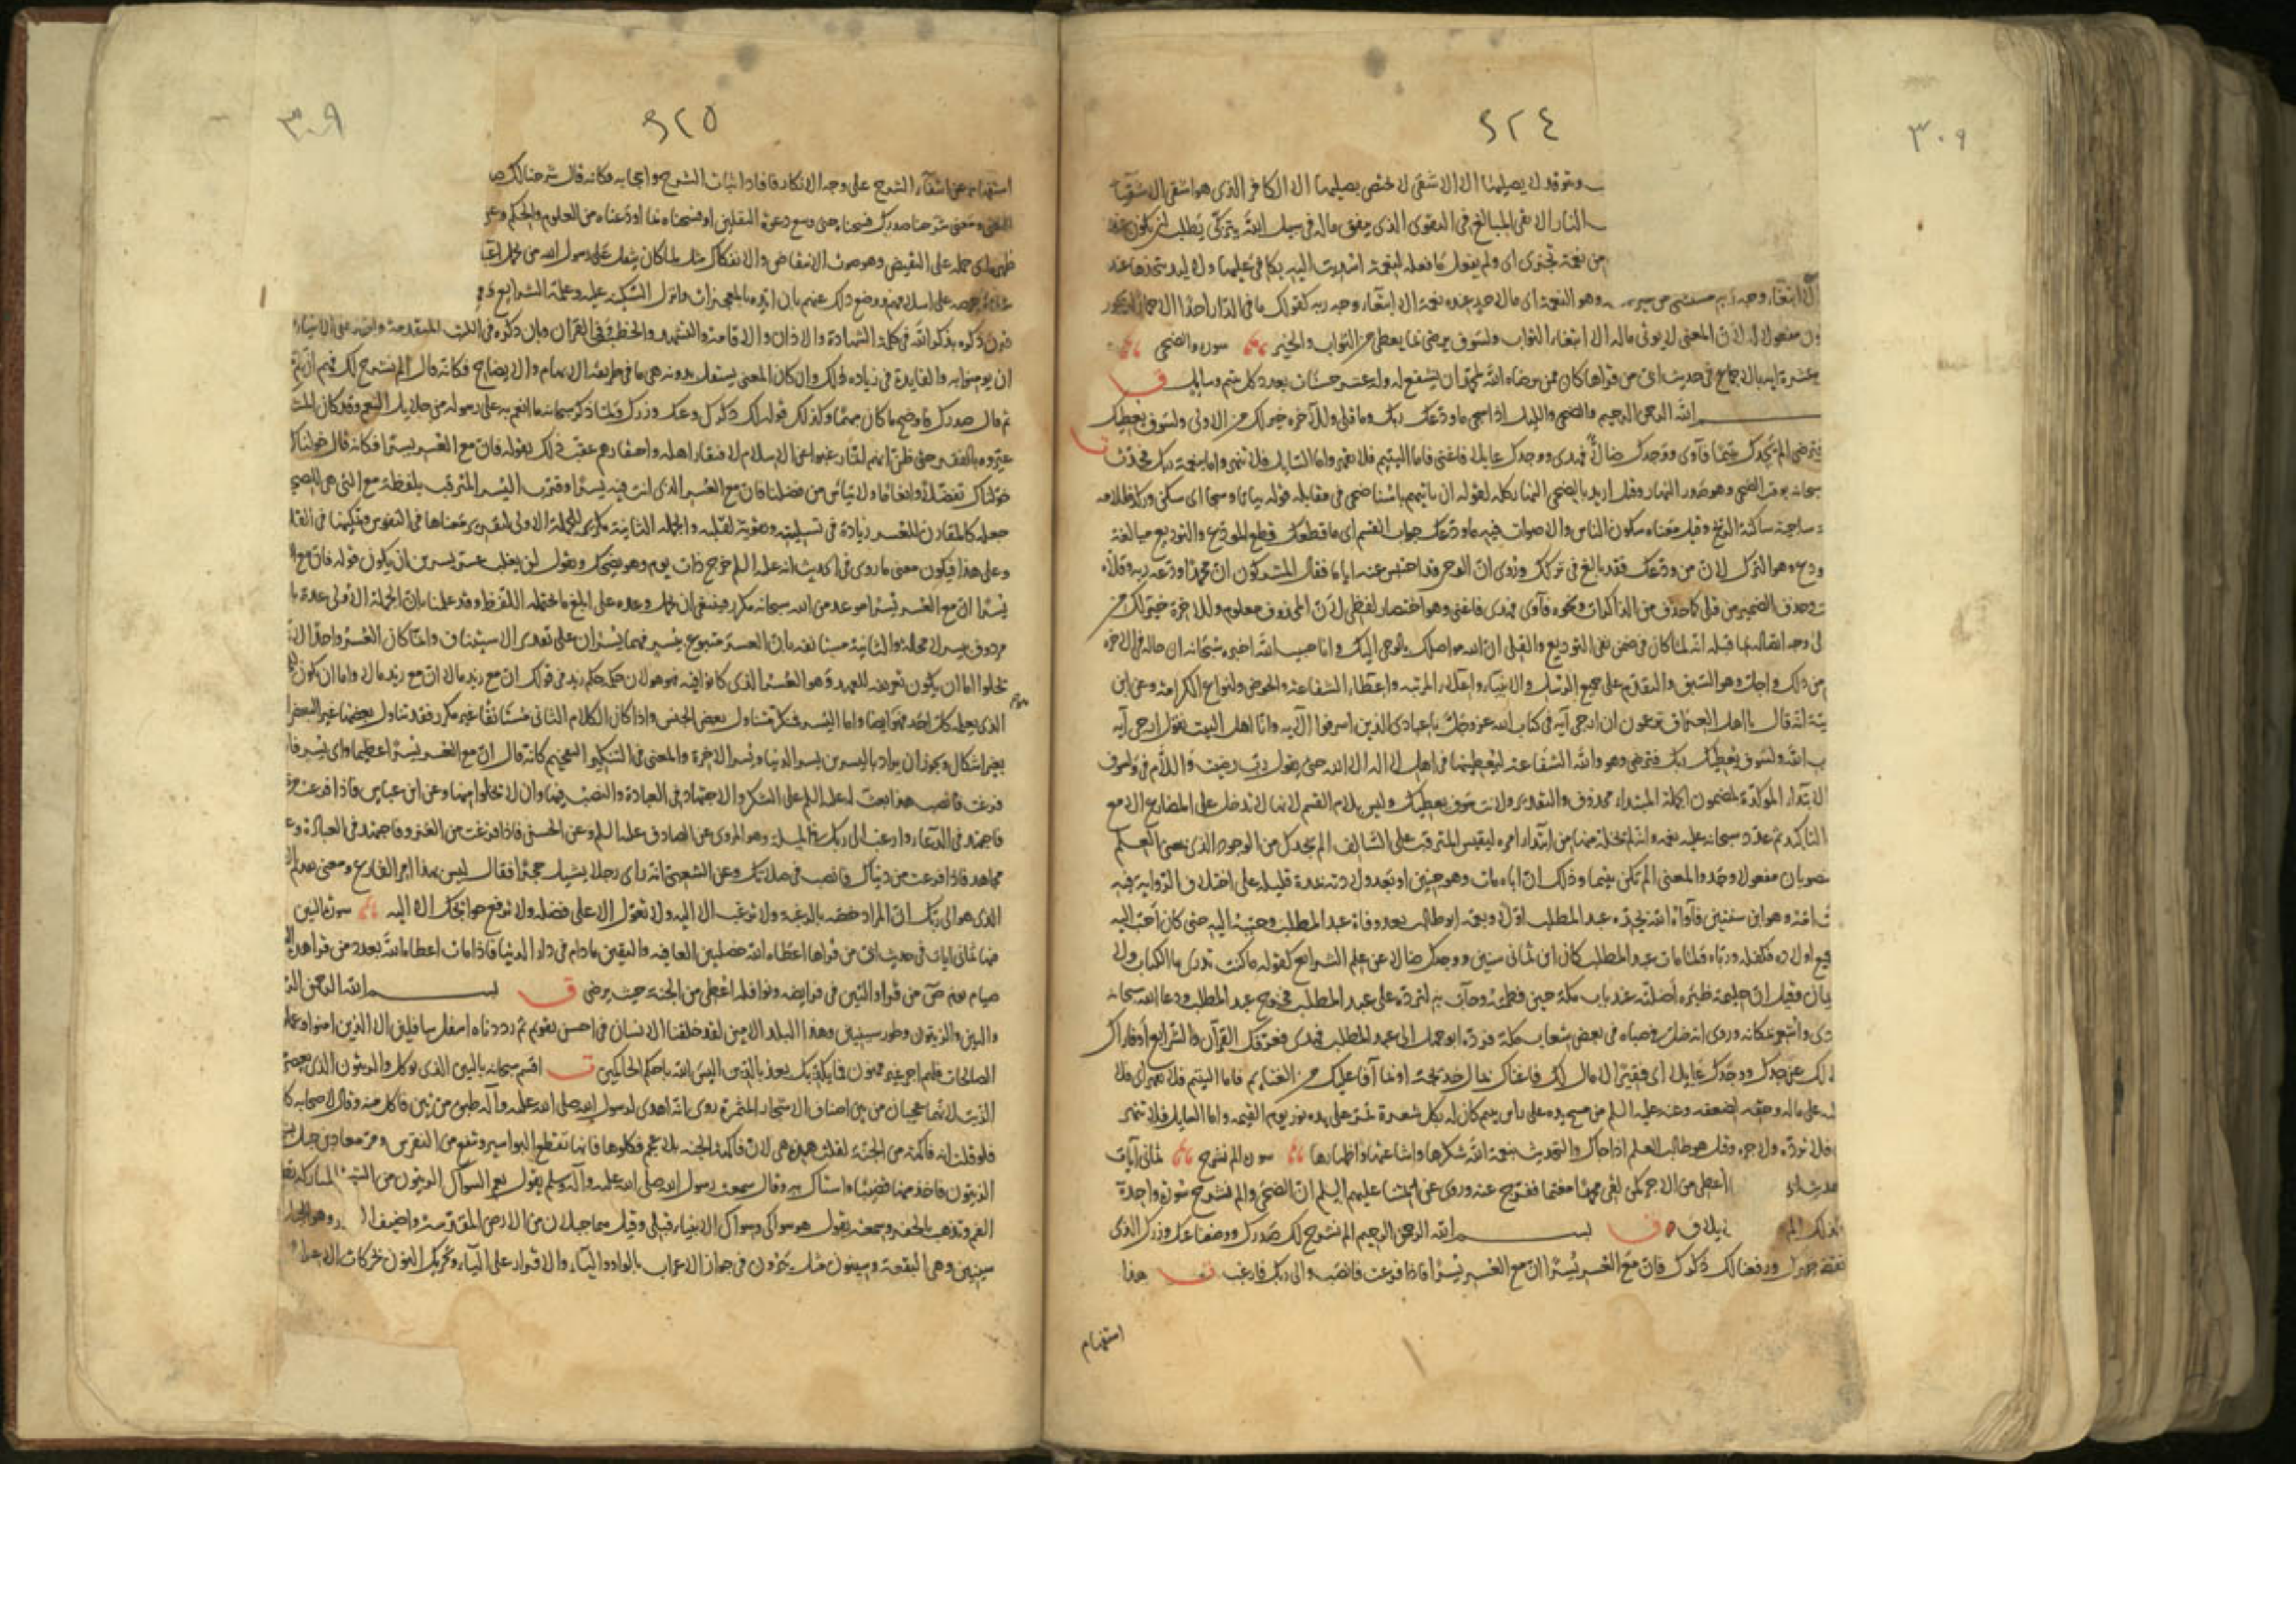 ٣٠٩
٩٢٤
وتتوقد لا يصليها الا الاشقى لا يختص بصليها الا الكافر الذى هو اشقى الاشقيا
النار الاتقى المبالغ فى التقوى الذى ينفق ماله فى سبيل الله يتزكى يطلب ان يكون عند
من نعمة تجزى اى ولم يفعل ما فعله لنعمة اسديت اليه يكافى عليها ولا ليد يتخذها عند
الا ابتغاء وجه ربه مستثنى من وهو النعمة اى مالاحد عنده نعمة الا ابتغاء وجه ربه كقولك ما فى الدار احد الا
مفعولا له لان المعنى لا يوتى ماله الا ابتغاء الثواب ولسوف يرضى بما يعطى من الثواب والخير سورة والضحى
عشرة اية بالاجماع فى حديث ابى من قراها كان ممن يرضاه الله لمحمد ان يشفع له وله عشر حسنات بعدد كل يتيم وسايل ق
الله الرحمن الرحيم والضحى والليل اذا سجى ما ودعك ربك وما قلى وللآخرة خير لك من الاولى ولسوف يعطيك
فترضى الم يجدك يتيما فآوى ووجدك ضالا فهدى ووجدك عايلا فاغنى فاما اليتيم فلا تقهر واما السايل فلا تنهر واما بنعمة ربك فحدث ت
سبحانه بوقت الضحى وهو صدر النهار وقيل اريد بالضحى النهار كله لقوله ان ياتيهم باسنا ضحى فى مقابلة قوله بياتا وسجى اى سكن وركد ظلامه
ساجية ساكنة الريح وقيل معناه سكون الناس والاصوات فيه ما ودعك جواب القسم اى ما قطعك قطع المودع والتوديع مبالغة
ودع وهو الترك لان من ودعك فقد بالغ فى تركك وروى ان الوحى قد احتبس عنه اياما فقال المشركون ان محمدا ودعه ربه وقلاه
وحذف الضمير من قلى كما حذف من الذاكرات ونحوه فآوى فهدى فاغنى وهو اختصار لفظى لان المحذوف معلوم وللآخرة خير لك من
وجه اتصاله بما قبله انه لما كان فى ضمن نفى التوديع والقلى ان الله مواصلك بالوحى اليك وانك حبيب الله اخبره سبحانه ان حاله فى الاخرة
من ذلك واجل وهو السبق والتقدم على جميع الرسل والانبياء واعلاء المرتبة واعطاء الشفاعة والحوض وانواع الكرامة وعن ابن
انه قال يا اهل العراق تزعمون ان ارجى آية فى كتاب الله عز وجل يا عبادى الذين اسرفوا الآية وانا اهل البيت نقول ارجى آية
الله ولسوف يعطيك ربك فترضى وهو والله الشفاعة ليعطينها فى اهل لا اله الا الله حتى يقول رب رضيت واللام فى ولسوف
الابتداء الموكدة لمضمون الجملة المبتداء محذوف والتقدير ولانت سوف يعطيك وليس بلام القسم لانها لا تدخل على المضارع الا مع
التاكيد ثم عدد سبحانه عليه نعمه وانه لم يخله منها من ابتداء امره ليقيس المترقب على السالف الم يجدك من الوجود الذى بمعنى العلم
منصوبان مفعولا وجد والمعنى الم تكن يتيما وذلك ان اباه مات وهو جنين او بعد ولادته بمدة قليلة على اختلاف الرواية فيه
امه وهو ابن سنتين فآواه الله بجده عبد المطلب اولا وبعمه ابوطالب بعد وفاة عبد المطلب وحببه اليه حتى كان احب اليه
اولاده فكفله ورباه فلما مات عبد المطلب كان ابن ثمانى سنين ووجدك ضالا عن علم الشرايع كقوله ما كنت تدرى ما الكتاب ولا
فقيل ان حليمة ظئره اضلته عند باب مكة حين فطمته وجات به لترده على عبد المطلب فخرج عبد المطلب ودعا الله سبحانه
واشعر بمكانه وروى انه ضل فى صباه فى بعض شعاب مكة فرده ابوجهل الى عبد المطلب فهدى فعرفك القرآن والشرايع او فازال
عن جدك ووجدك عايلا اى فقيرا لا مال لك فاغناك بمال خديجة او بما آفا عليك من الغنايم فاما اليتيم فلا تقهر اى فلا
على ماله وحقه لضعفه وعنه عليه السلم من مسح يده على راس يتيم كان له بكل شعرة تمر على يده نور يوم القيمة واما السايل فلا تنهر
فلا تردّه ولا تزجره وقيل هو طالب العلم اذا جاك والتحدث بنعمة الله شكرها واشاعتها واظهارها سورة الم نشرح ثمانى آيات
اعطى من الاجر كمن لقى محمدا مغتما ففرج عنه وروى عن ايمتنا عليهم السلم ان الضحى والم نشرح سورة واحدة
لايلاف ق بسم الله الرحمن الرحيم الم نشرح لك صدرك ووضعنا عنك وزرك الذى
انقض ظهرك ورفعنا لك ذكرك فان مع العسر يسرا ان مع العسر يسرا فاذا فرغت فانصب والى ربك فارغب ت هذا
استفهام
٩٢٥
٣٠٩
استفهام عن انتفاء الشرح على وجه الانكار فافاد اثبات الشرح وايجابه فكانه قال شرحنا لك
ومعنى شرحنا صدرك فسحناه حتى وسع دعوة الثقلين او فسحناه بما اودعناه من العلوم والحكم
ظهره اى حمله على النقيض وهو صوت الانتقاض والانفكاك مثل لما كان يثقل على رسول الله من
على اسلامهم ووضع ذلك عنهم بان ايده بالمعجزات وانزل السكينة عليه وعلمه الشرايع
قرن ذكره بذكر الله فى كلمة الشهادة والاذان والاقامة والتشهد والخطب فى القرآن وبان ذكره فى الكتب المتقدمة
ان يومنوا به والفايدة فى زيادة لك وان كان المعنى يستقل بدونه هى ما فى طريقة الابهام والايضاح فكانه قال الم نشرح لك فهم ان ثم
ثم قال صدرك فاوضح ما كان مبهما وكذلك قوله لك ذكرك وعنك وزرك فلما ذكر سبحانه ما انعم به على رسوله من جلايل النعم وقد كان
عيروه بالفقر حتى ظن انهم انما رغبوا عن الاسلام لافتقار اهله واحتقارهم عقب ذلك بقوله فان مع العسر يسرا فكانه قال خولناك
خولناك تفضلا وانعاما ولا تيأس من فضلنا فان مع العسر الذى انت فيه يسرا وقرب اليسر المترقب بلفظة مع التى هى للصحبة
جعله كالمقارن للعسر زيادة فى تسليته وتقوية لقلبه والجملة الثانية تكرير للجملة الاولى لتقرير معناها فى النفوس وتمكينها فى
وعلى هذا فيكون معنى ما روى فى الحديث انه عليه السلم خرج ذات يوم وهو يضحك ويقول لن يغلب عسر يسرين ان يكون قوله فان مع
يسرا ان مع العسر يسرا موعد من الله سبحانه مكرر فينبغى ان يحمل وعده على ابلغ ما يحتمله اللفظ وقد علمنا بان الجملة الاولى عدة
مردوف بيسر لا محالة والثانية مستانفة بان العسر متبوع بيسر فهما يسران على تقدير الاستيناف وانما كان العسر واحدا
يخلوا اما ان يكون تعريفه للعهد وهو العسر الذى كانوا فيه فهو هو لان حكمه حكم زيد فى قولك ان مع زيد مالا ان مع زيد مالا واما ان يكون
الذى يعلمه كل احد فهو ايضا واما اليسر فمنكر متناول لبعض الجنس واذا كان الكلام الثانى مستانفا غير مكرر فقد تناول بعضا غير البعض
بغير اشكال ويجوز ان يراد باليسرين يسر الدنيا ويسر الاخرة والمعنى فى التنكير التفخيم كانه قال ان مع العسر يسرا عظيما واى يسر
فرغت فانصب هذا بعث له عليه السلم على الشكر والاجتهاد فى العبادة والنصب فيها وان لا يخلوا منها وعن ابن عباس فاذا فرغت
فاجتهد فى الدعاء وارغب الى ربك فى المسلة وهو المروى عن الصادق عليه السلم وعن الحسن فاذا فرغت من الغزو فاجتهد فى العبادة
مجاهد فاذا فرغت من دنياك فانصب فى صلاتك وعن الشعبى انه راى رجلا يشيل حجرا فقال ليس بهذا امر الفارغ ومعنى تقديم
الذى هو الى ربك ان المراد خصه بالرغبة ولا ترغب الا اليه ولا تعول الا على فضله ولا ترفع حوايجك الا اليه سورة التين
ثمانى ايات فى حديث ابى من قراها اعطاه الله خصلتين العافية واليقين مادام فى دار الدنيا فاذا مات اعطاه الله بعدد من قرا هذه
صيام يوم ص من قرا والتين فى فرايضه ونوافله اعطى من الجنة حيث يرضى ق بسم الله الرحمن
والتين والزيتون وطور سينين وهذا البلد الامين لقد خلقنا الانسان فى احسن تقويم ثم رددناه اسفل سافلين الا الذين امنوا وعملوا
الصالحات فلهم اجر غير ممنون فما يكذبك بعد بالدين اليس الله باحكم الحاكمين ت اقسم سبحانه بالتين الذى يوكل والزيتون الذى يعصر
الزيت لانهما عجيبان من بين اصناف الاشجار المثمرة روى انه اهدى لرسول الله صلى الله عليه وآله طبق من تين فاكل منه وقال لاصحابه كلوا
فلو قلت ان فاكهة من الجنة لقلت هذه هى لان فاكهة الجنة بلا عجم فكلوها فانها تقطع البواسير وتنفع من النقرس ومر معاذ بن جبل
الزيتون فاخذ منها قضيبا واستاك به وقال سمعت رسول الله صلى الله عليه وآله وسلم يقول نعم السواك الزيتون من الشجرة المباركة
الفم وتذهب بالحفر وسمعته يقول هو سواكى وسواك الانبياء قبلى وقيل هما جبلان من الارض المقدسة واضيف
سينين وهى البقعة وسينون مثل يبرون فى جواز الاعراب بالواو والياء والاقرار على الياء وتحريك النون بحركات الاعراب